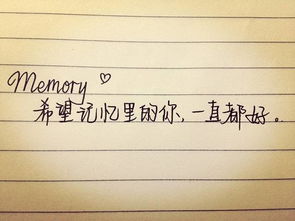 Memory ♡
希望记忆里的你,一直都好。